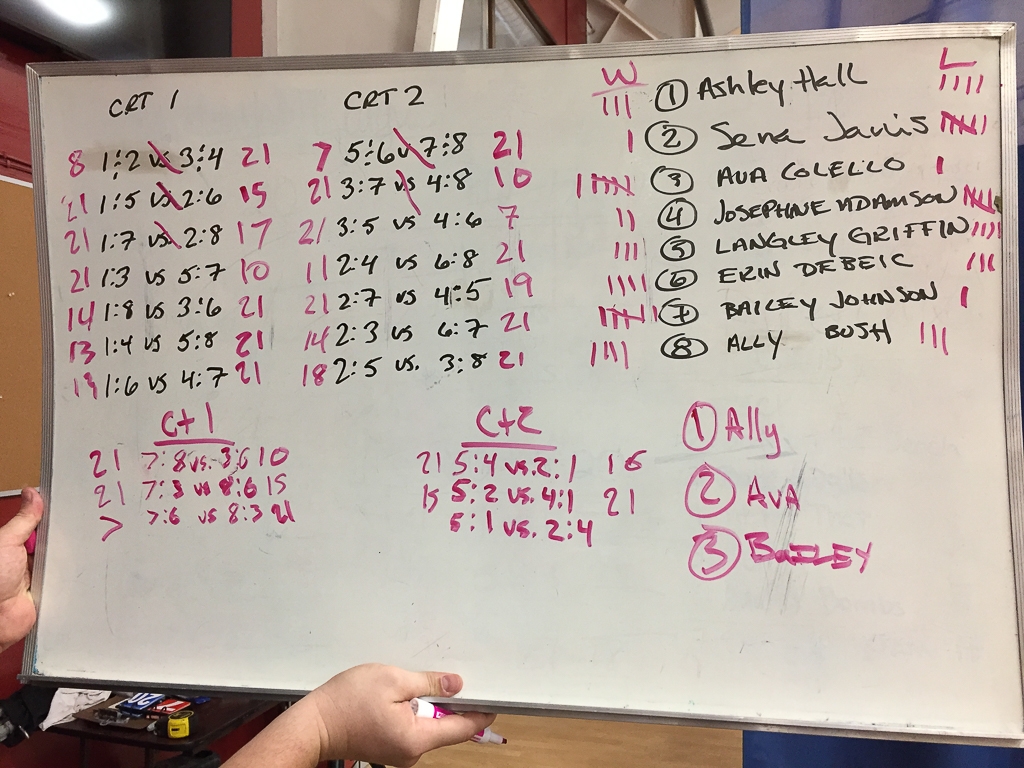 CRT 1
8 1:2 vs 3:4 21
21 1:5 vs 2:6 15
21 1:7 vs 2:8 17
21 1:3 vs 5:7 10
14 1:8 vs 3:6 21
13 1:4 vs 5:8 21
19 1:6 vs 4:7 21
CRT 2
7 5:6 v 7:8 21
21 3:7 vs 4:8 10
21 3:5 vs 4:6 7
11 2:4 vs 6:8 21
21 2:7 vs 4:5 19
14 2:3 vs 6:7 21
18 2:5 vs. 3:8 21
W L
III 1 Ashley Hall IIII
I 2 Sena Jarvis
3 AVA COLELLO I
II 4 JOSEPHNE ADAMSON
III 5 LANGLEY GRIFFIN IIII
IIII 6 ERIN DEBEIC III
7 BAILEY JOHNSON I
IIII 8 ALLY BUSH III
Ct 1
21 7:8 vs. 3:6 10
21 7:3 vs 8:6 15
7 7:6 vs 8:3 21
Ct 2
21 5:4 vs. 2:1 16
15 5:2 vs. 4:1 21
5:1 vs. 2:4
1 Ally
2 AVA
3 BAILEY